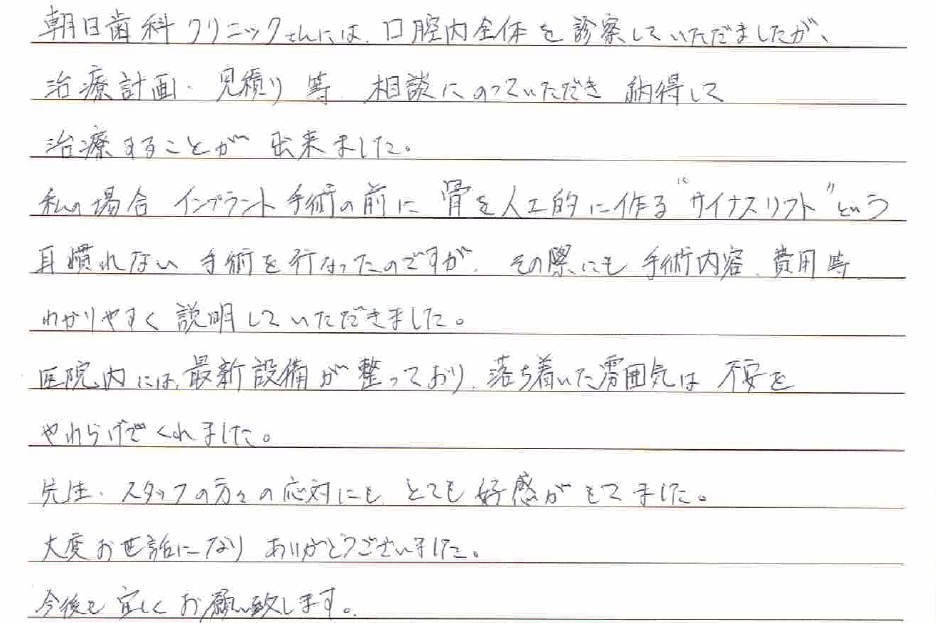 朝日歯科クリニックさんには、口腔内全体を診察していただきましたが、
治療計画・見積り等 相談にのっていただき 納得して
治療することが 出来ました。
私の場合 インプラント手術の前に 骨を人工的に作る "サイナスリフト" という
耳慣れない 手術を行なったのですが、その際にも 手術内容、費用等
わかりやすく 説明していただきました。
医院内には、最新設備が整っており、落ち着いた雰囲気は 不安を
やわらげてくれました。
先生・スタッフの方々の応対にも とても 好感がもてました。
大変お世話になり ありがとうございました。
今後も 宜しくお願い致します。